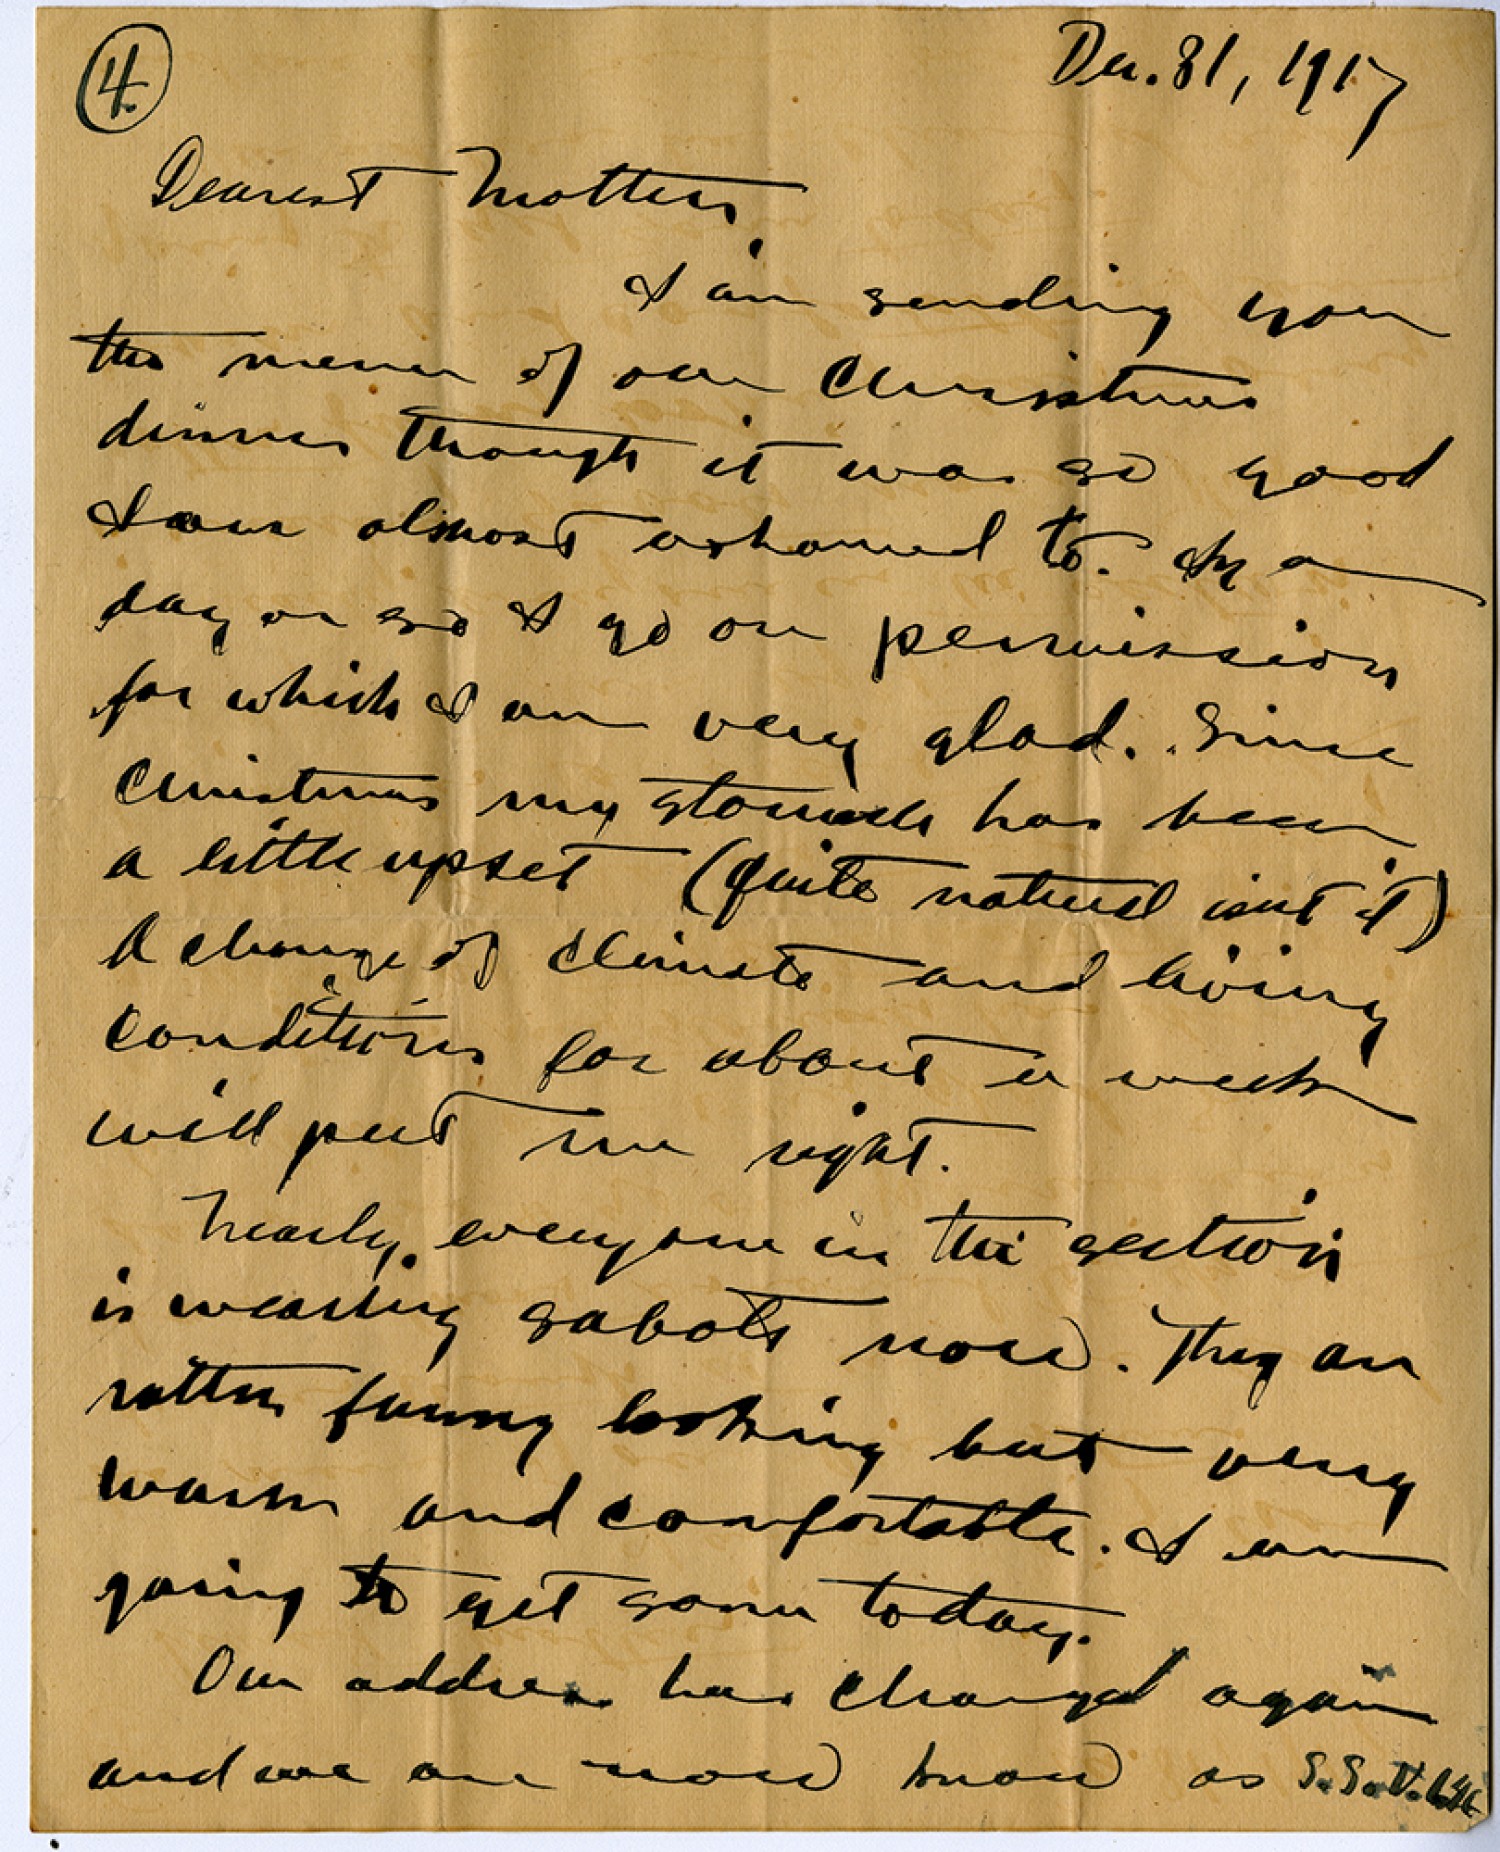 4.
Dec. 31, 1917
Dearest Mother,
I am sending you
the menu of our Christmas
dinner though it was so good
I am almost ashamed to. In a
day or so I go on permission
for which I am very glad. Since
Christmas my stomach has been
a little upset (quite natural isn't it)
A change of climate and living
conditions for about a week
will put me right.
Nearly everyone in the section
is wearing sabots now. They are
rather funny looking but very
warm and comfortable. I am
going to get some today.
Our address has changed again
and we are now know as S.S.U.